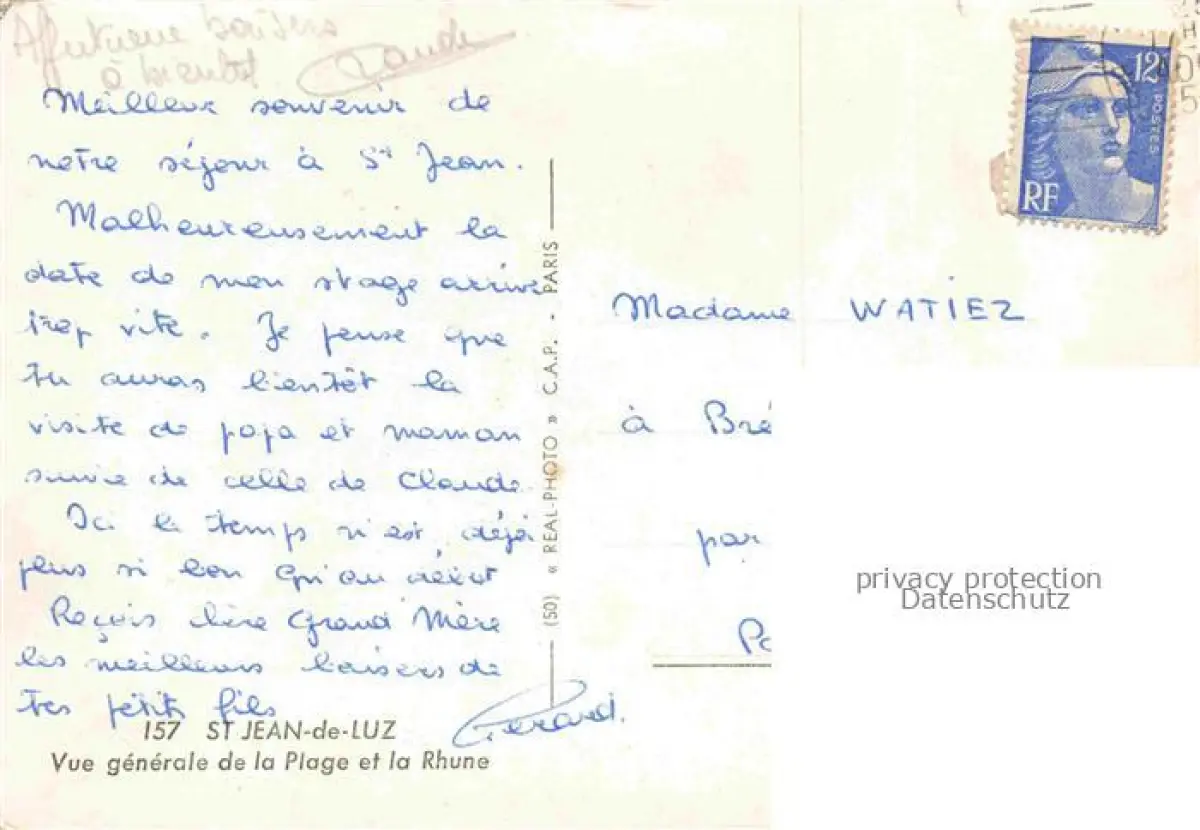 Affectueux baisers
à bientôt Claude
Meilleur souvenir de
notre séjour à St Jean.
Malheureusement la
date de mon stage arrive
trop vite. Je pense que
tu auras bientôt la
visite de papa et maman
suivie de celle de Claude.
Ici le temps n'est déjà
plus si bon qu'au début
Reçois chère Grand'Mère
les meilleurs baisers de
tes petits fils
Gérard.
157 ST JEAN-de-LUZ
Vue générale de la Plage et la Rhune
(50) « REAL-PHOTO » C.A.P. - PARIS
12F
POSTES
RF
Madame WATIEZ
à Bré
par
Po
privacy protection
Datenschutz